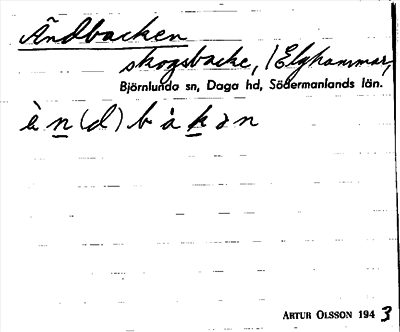 Ändbacken
skogsbacke, /Elghammar,
Björnlunda sn, Daga hd, Södermanlands län.
ὰn(d)bὰkən
ARTUR OLSSON 1943